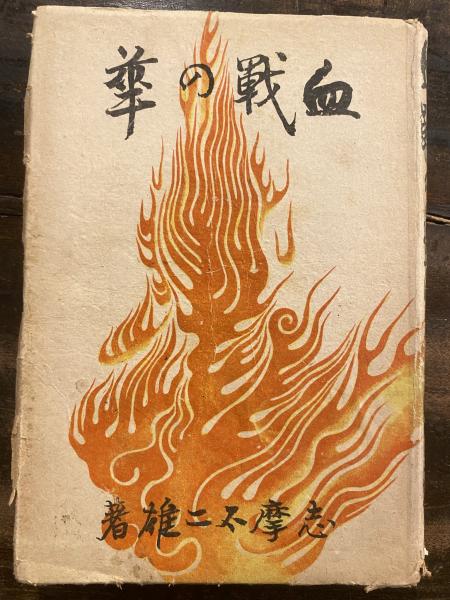 血戰の華
志摩不二雄著